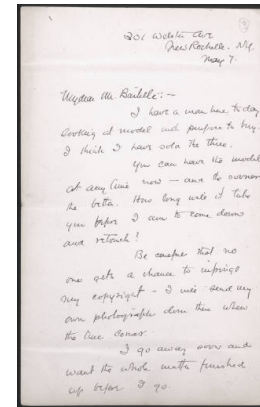 301 Webster Ave
New Rochelle. N.Y.
May 7.
My dear Mr. Bartlett: -
I have a man here today
looking at model and proposes to buy.
I think I have sold the three.
You can have the model
at any time now - and the sooner
the better. How long will it take
you before I am to come down
and retouch?
Be careful that no
one gets a chance to infringe
my copyright - I will send my
own photographer down then when
the time comes.
I go away soon and
want the whole matter finished
up before I go.